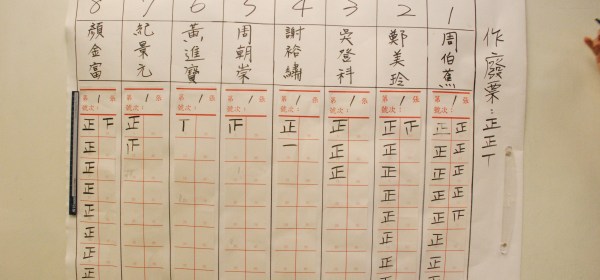 作廢票：正正丅
1 周伯蕉
第1張
號次：
正正正正正正正
正正正正𤴓
2 鄭美玲
第1張
號次：
正正正正正正正
𤴓
3 吳登科
第1張
號次：
正正正
4 謝裕繡
第1張
號次：
正一
5 周朝榮
第1張
號次：
𤴓
6 黃進寶
第1張
號次：
丅
7 紀景元
第1張
號次：
正𤴓
8 顏金富
第1張
號次：
正正正正正正正
下